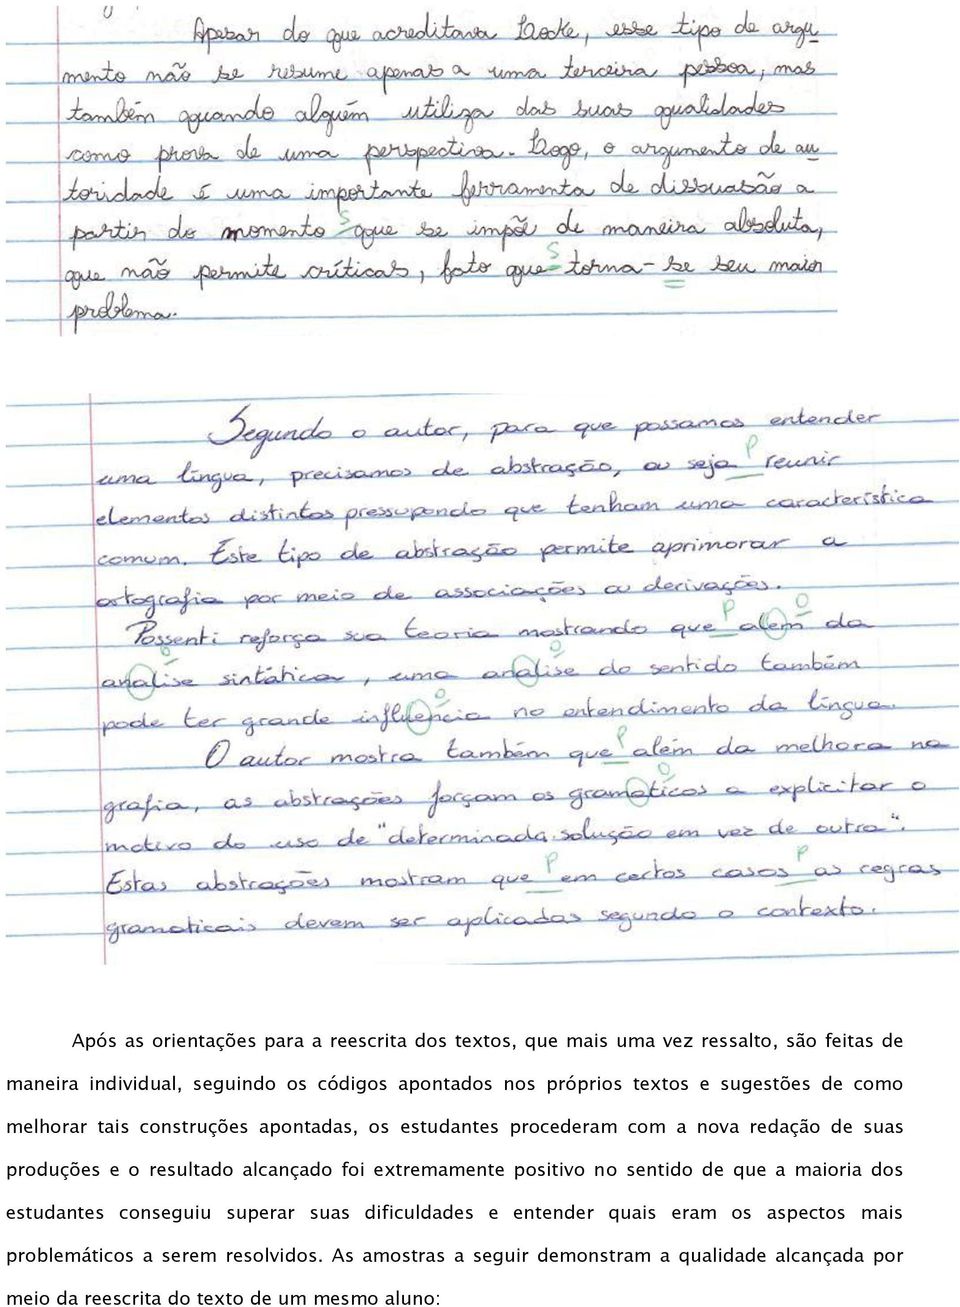 Apesar do que acreditava Locke, esse tipo de argu
mento não se resume apenas a uma terceira pessoa, mas
também quando alguém utiliza das suas qualidades
como prova de uma perspectiva. Logo, o argumento de au
toridade é uma importante ferramenta de dissuasão a
S
partir do momento que se impõe de maneira absoluta,
S
que não permite críticas, fato que torna-se seu maior
problema.
Segundo o autor, para que possamos entender
P
uma língua, precisamos de abstração, ou seja reunir
elementos distintos pressupondo que tenham uma característica
comum. Este tipo de abstração permite aprimorar a
ortografia por meio de associações ou derivações.
P O
Possenti reforça sua teoria mostrando que além da
O O
analise sintática, uma analise do sentido também
O
pode ter grande influencia no entendimento da língua.
P
O autor mostra também que além da melhora na
O
grafia, as abstrações forçam os gramáticos a explicitar o
motivo do uso de "determinada solução em vez de outra".
P P
Estas abstrações mostram que em certos casos as regras
gramaticais devem ser aplicadas segundo o contexto.
Após as orientações para a reescrita dos textos, que mais uma vez ressalto, são feitas de
maneira individual, seguindo os códigos apontados nos próprios textos e sugestões de como
melhorar tais construções apontadas, os estudantes procederam com a nova redação de suas
produções e o resultado alcançado foi extremamente positivo no sentido de que a maioria dos
estudantes conseguiu superar suas dificuldades e entender quais eram os aspectos mais
problemáticos a serem resolvidos. As amostras a seguir demonstram a qualidade alcançada por
meio da reescrita do texto de um mesmo aluno: